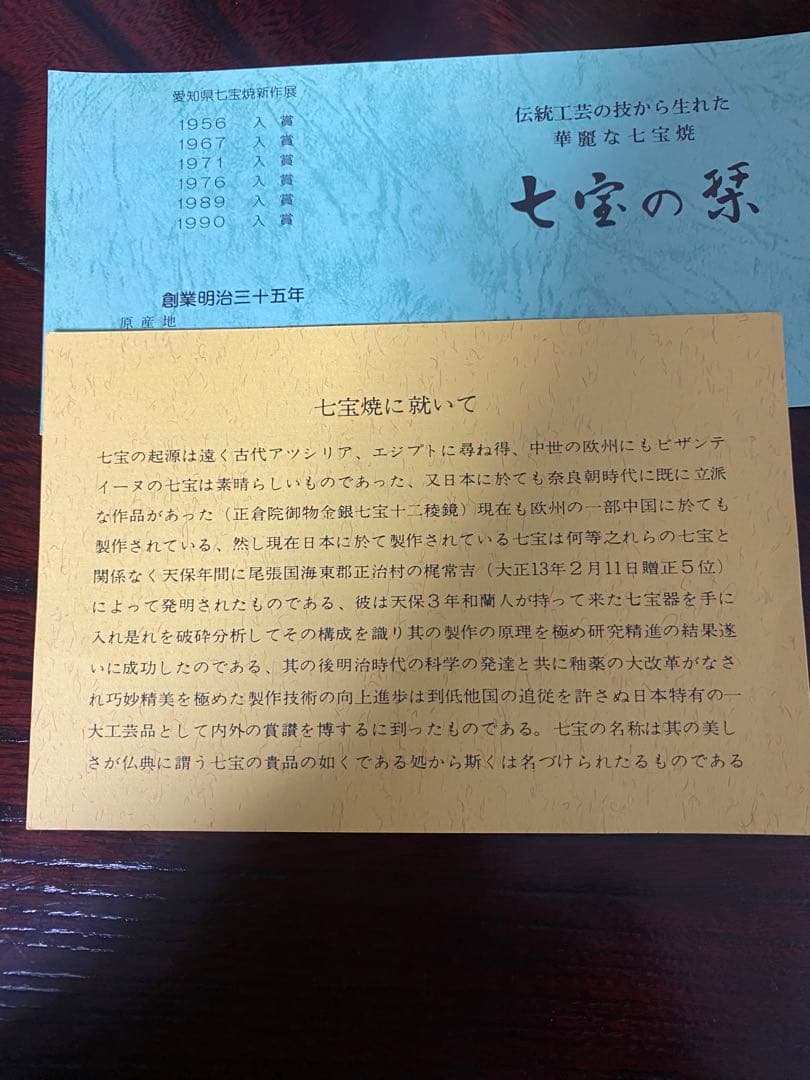 愛知県七宝焼新作展
1956 入賞
1967 入賞
1971 入賞
1976 入賞
1989 入賞
1990 入賞
創業明治三十五年
原産地
伝統工芸の技から生れた
華麗な七宝焼
七宝の栞
七宝焼に就いて
七宝の起源は遠く古代アツシリア、エジプトに尋ね得、中世の欧州にもビザンテ
イーヌの七宝は素晴らしいものであった、又日本に於ても奈良朝時代に既に立派
な作品があった（正倉院御物金銀七宝十二稜鏡）現在も欧州の一部中国に於ても
製作されている、然し現在日本に於て製作されている七宝は何等之れらの七宝と
関係なく天保年間に尾張国海東郡正治村の梶常吉（大正13年2月11日贈正5位）
によって発明されたものである、彼は天保3年和蘭人が持って来た七宝器を手に
入れ是れを破砕分析してその構成を識り其の製作の原理を極め研究精進の結果遂
いに成功したのである、其の後明治時代の科学の発達と共に釉薬の大改革がなさ
れ巧妙精美を極めた製作技術の向上進歩は到低他国の追従を許さぬ日本特有の一
大工芸品として内外の賞讃を博するに到ったものである。七宝の名称は其の美し
さが仏典に謂う七宝の貴品の如くである処から斯くは名づけられたるものである